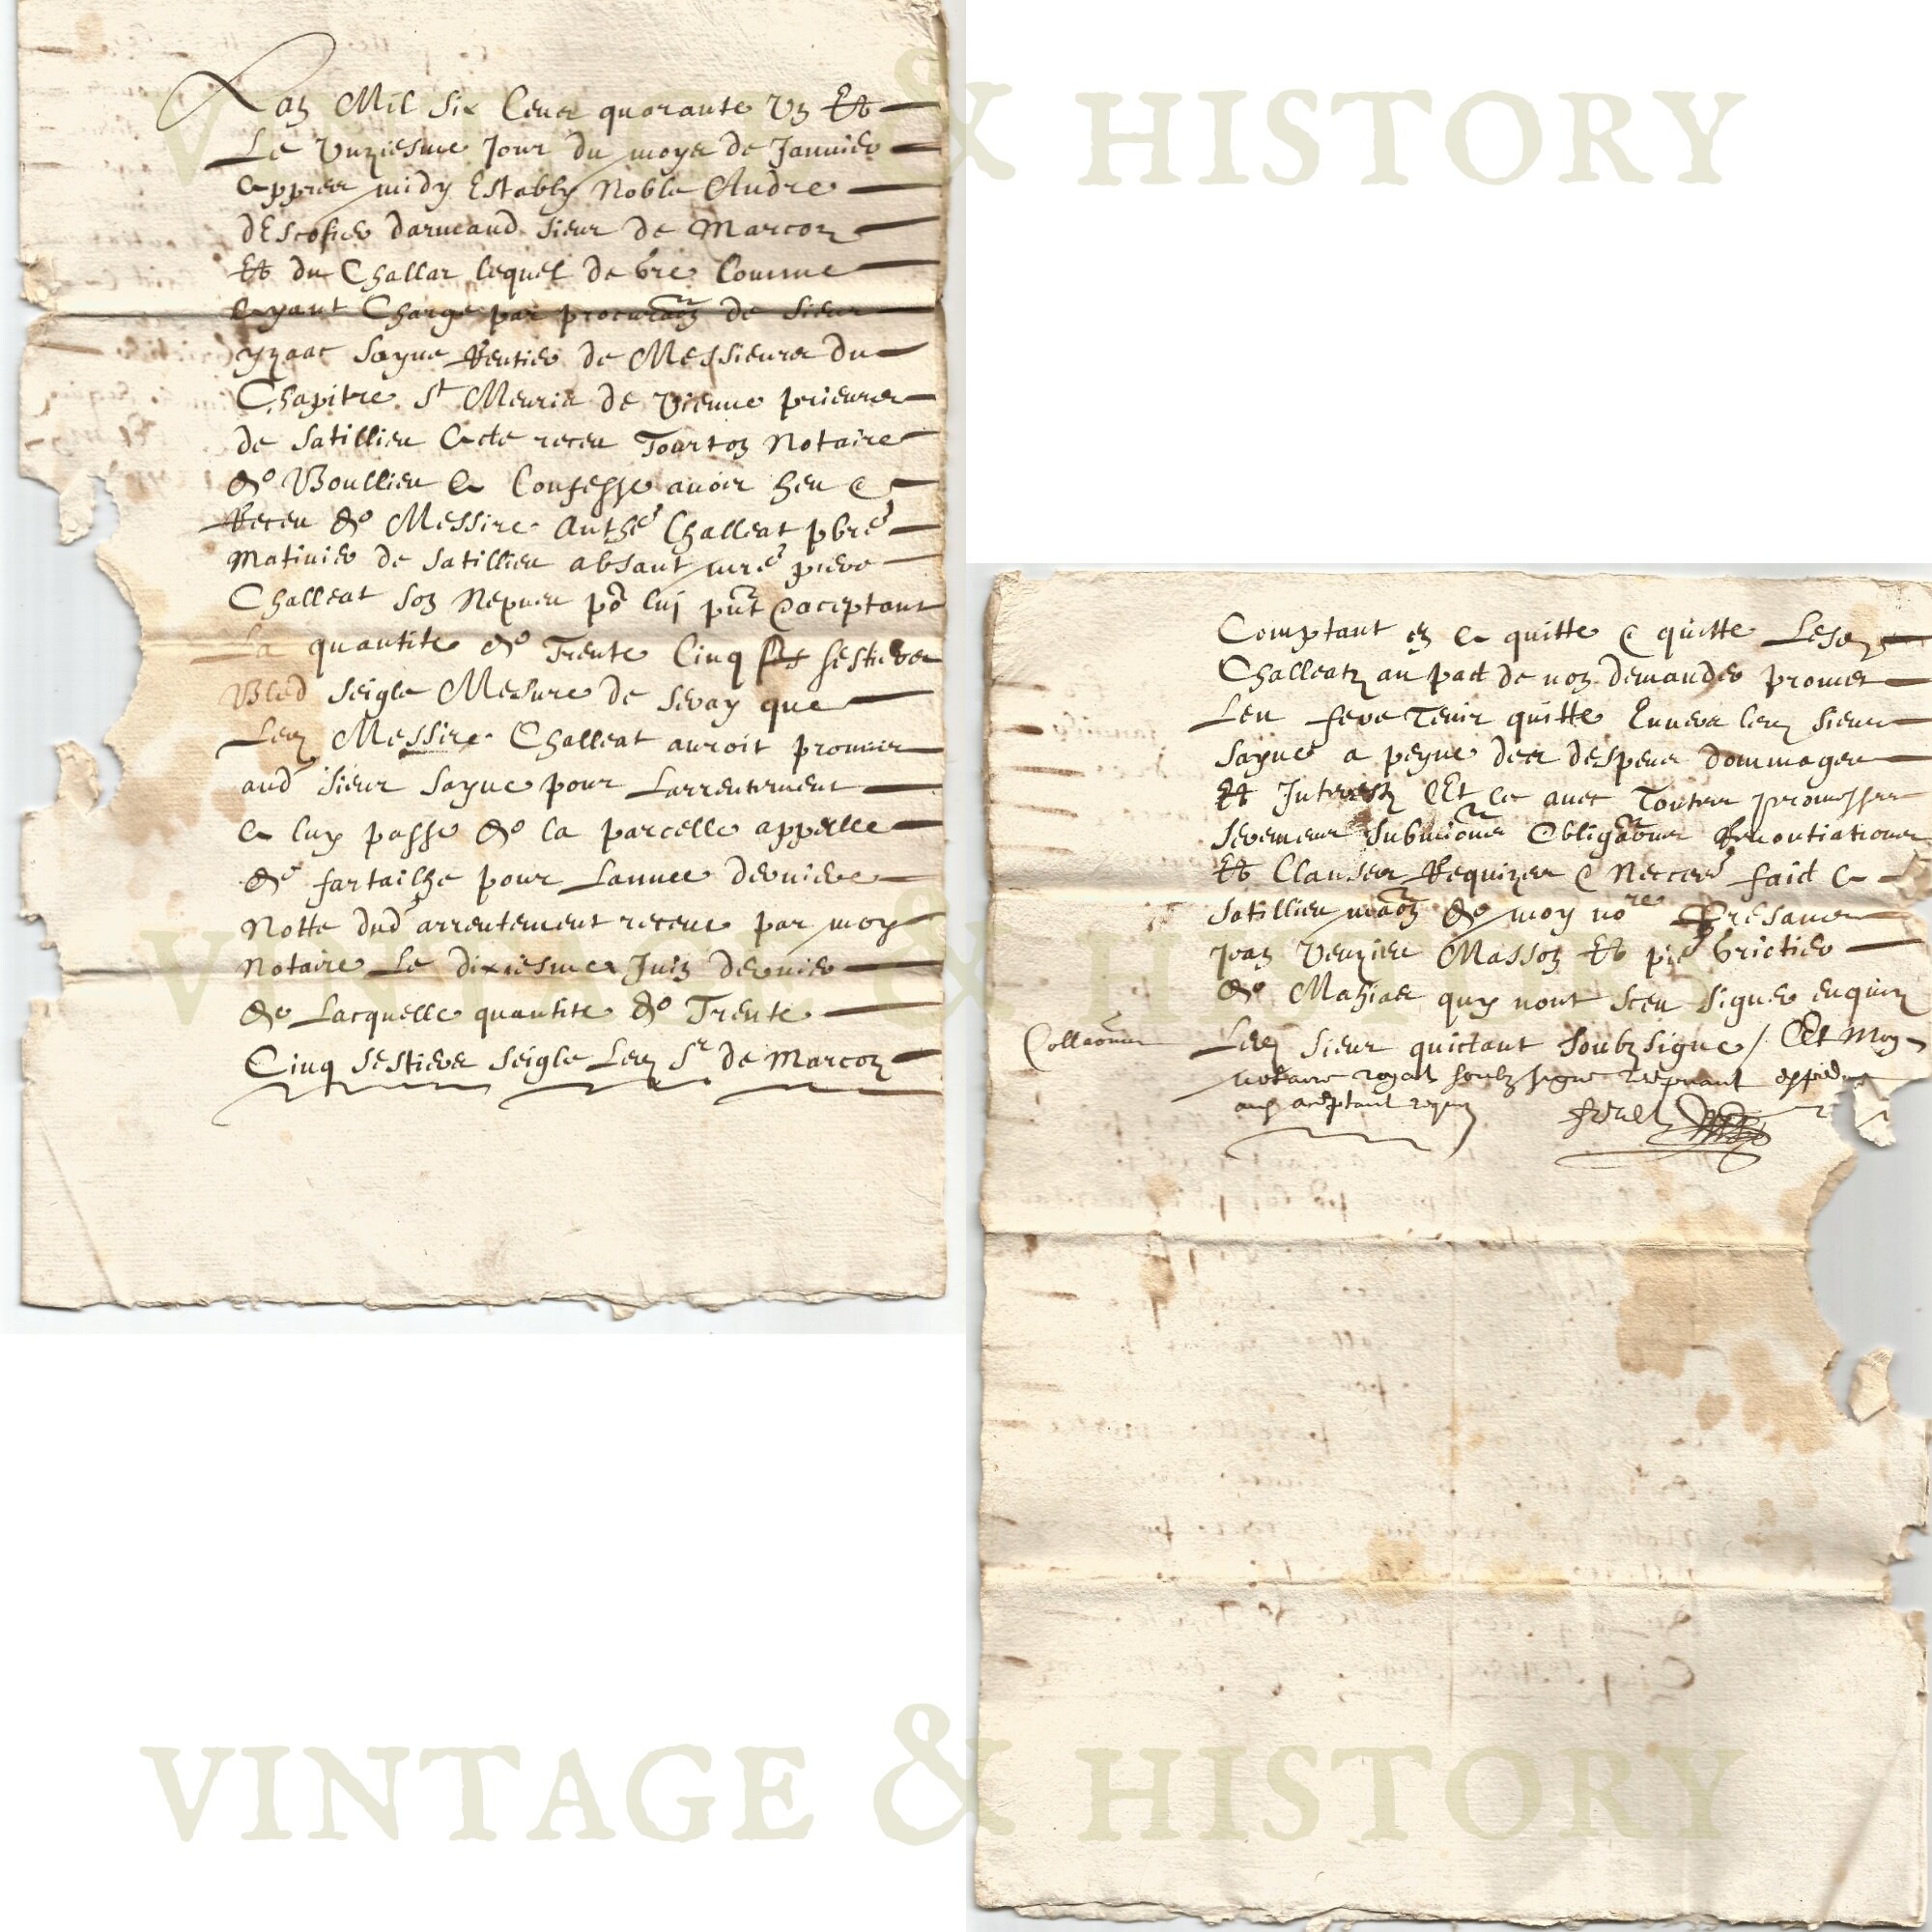 Lan Mil Six Cens quarante Un Et
Le Unziesme Jour du moys de Janvier
appres midy Estably Noble Andre
dEscofier darneaud sieur de Marcon
Et du Challar lequel de gre Comme
ayant Charge par procuraon de sieur
yzaac Sayne Rentier de Messieurs du
Chapitre St Meuris de Vienne prieurs
de Satillieu acte receu Tourton Notaire
de Boullieu a Confesse avoir heu e
Receu de Messire Anthe Challeat pbre
Matinier de Satillieu absant mre pierre
Challeat son Nepveu po luj pnt e aceptant
La quantite de Trente Cinq sestiers
Bled seigle Mesure de Seray que
Led Messire Challeat auroit promis
aud sieur Sayne pour Larrentement
a luy passe de la parcelle appelle
de fartailhe pour Lannee derniere
Notte dud arrentement receue par moy
Notaire Le dixiesme Juin dernier
de Lacquelle quantite de Trente
Cinq sestiers seigle Led Sr de Marcon
Comptant en a quitte e quitte Lesd
Challeatz au pact de non demander promet
Leu fere Tenir quitte Envers led sieur
Sayne a peyne des despens dommages
Et Interestz Et ce avec Toutes promesses
seremens Submiōns Obligāons Renontiations
Et Clauses Requizes e Neccere faict a
Satillieu maōn de moy nore Presans
Jean Veuziere Masson Et pie brictier
de Mahias quy nont sceu signer enquis
Collaōnne
Led sieur quictant Soubzsigne / Et Moy
notaire royal soubzsigne expedie
aud aceptant